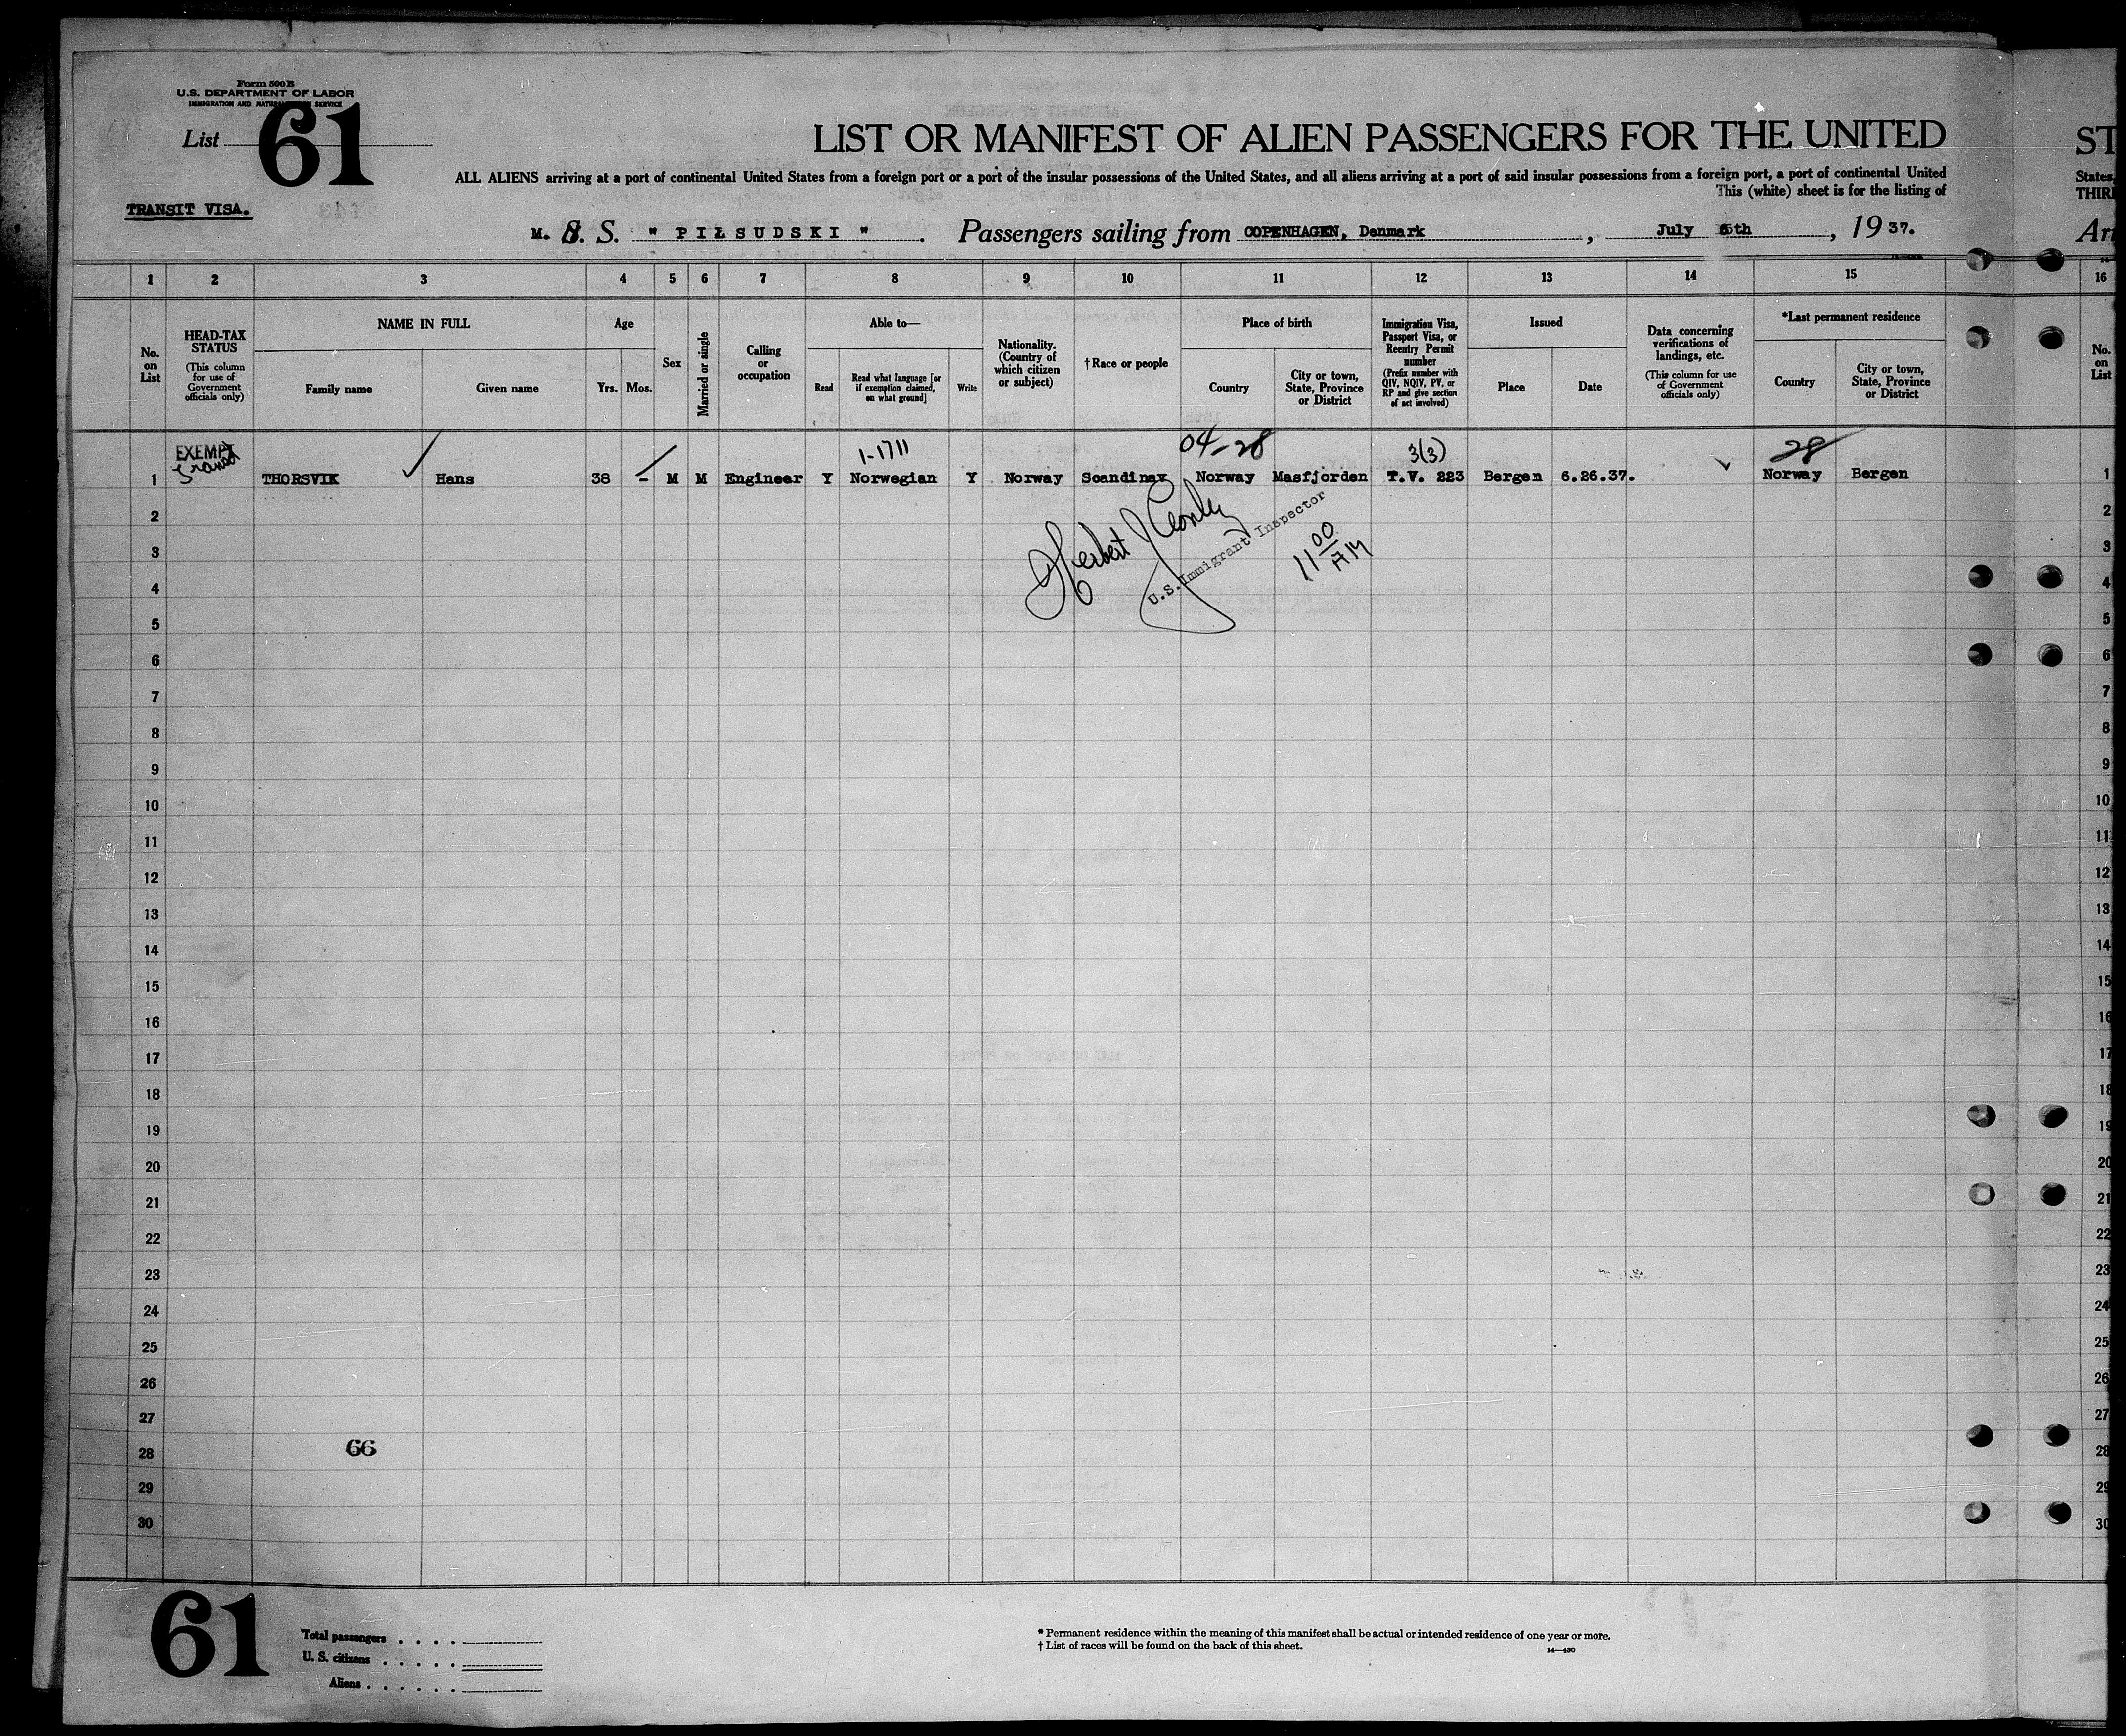 Form 500 B
U.S. DEPARTMENT OF LABOR
IMMIGRATION AND SERVICE
List 61
TRANSIT VISA.
LIST OR MANIFEST OF ALIEN PASSENGERS FOR THE UNITED
ST
ALL ALIENS arriving at a port of continental United States from a foreign port or a port of the insular possessions of the United States, and all aliens arriving at a port of said insular possessions from a foreign port, a port of continental United
States,
This (white) sheet is for the listing of
THIR
M. S. S. " PIŁSUDSKI " . Passengers sailing from COPENHAGEN, Denmark , July 6th , 1937.
Arr
1 2 3 4 5 6 7 8 9 10 11 12 13 14 15 16
No. on List
HEAD-TAX STATUS (This column for use of Government officials only)
NAME IN FULL
Family name
Given name
Age
Yrs. Mos.
Sex
Married or single
Calling or occupation
Able to—
Read
Read what language [or if exemption claimed, on what ground]
Write
Nationality. (Country of which citizen or subject)
† Race or people
Place of birth
Country
City or town, State, Province or District
Immigration Visa, Passport Visa, or Reentry Permit number (Prefix number with QIV, NQIV, PV, or RP and give section of act involved)
Issued
Place
Date
Data concerning verifications of landings, etc. (This column for use of Government officials only)
*Last permanent residence
Country
City or town, State, Province or District
No. on List
EXEMPT 1-1711 04-28 3(3) 28
Transit
1 THORSVIK ✓ Hans 38 - M M Engineer Y Norwegian Y Norway Scandinav Norway Masfjorden T.V. 223 Bergen 6.26.37. ✓ Norway Bergen 1
2 2
Herbert J
U.S. Immigrant Inspector
11 00 AM
3 3
4 4
5 5
6 6
7 7
8 8
9 9
10 10
11 11
12 12
13 13
14 14
15 15
16 16
17 17
18 18
19 19
20 20
21 21
22 22
23 23
24 24
25 25
26 26
27 27
28 66 28
29 29
30 30
61
Total passengers . . . .
U. S. citizens . . . . .
Aliens . . . . . .
* Permanent residence within the meaning of this manifest shall be actual or intended residence of one year or more.
† List of races will be found on the back of this sheet.
14—430